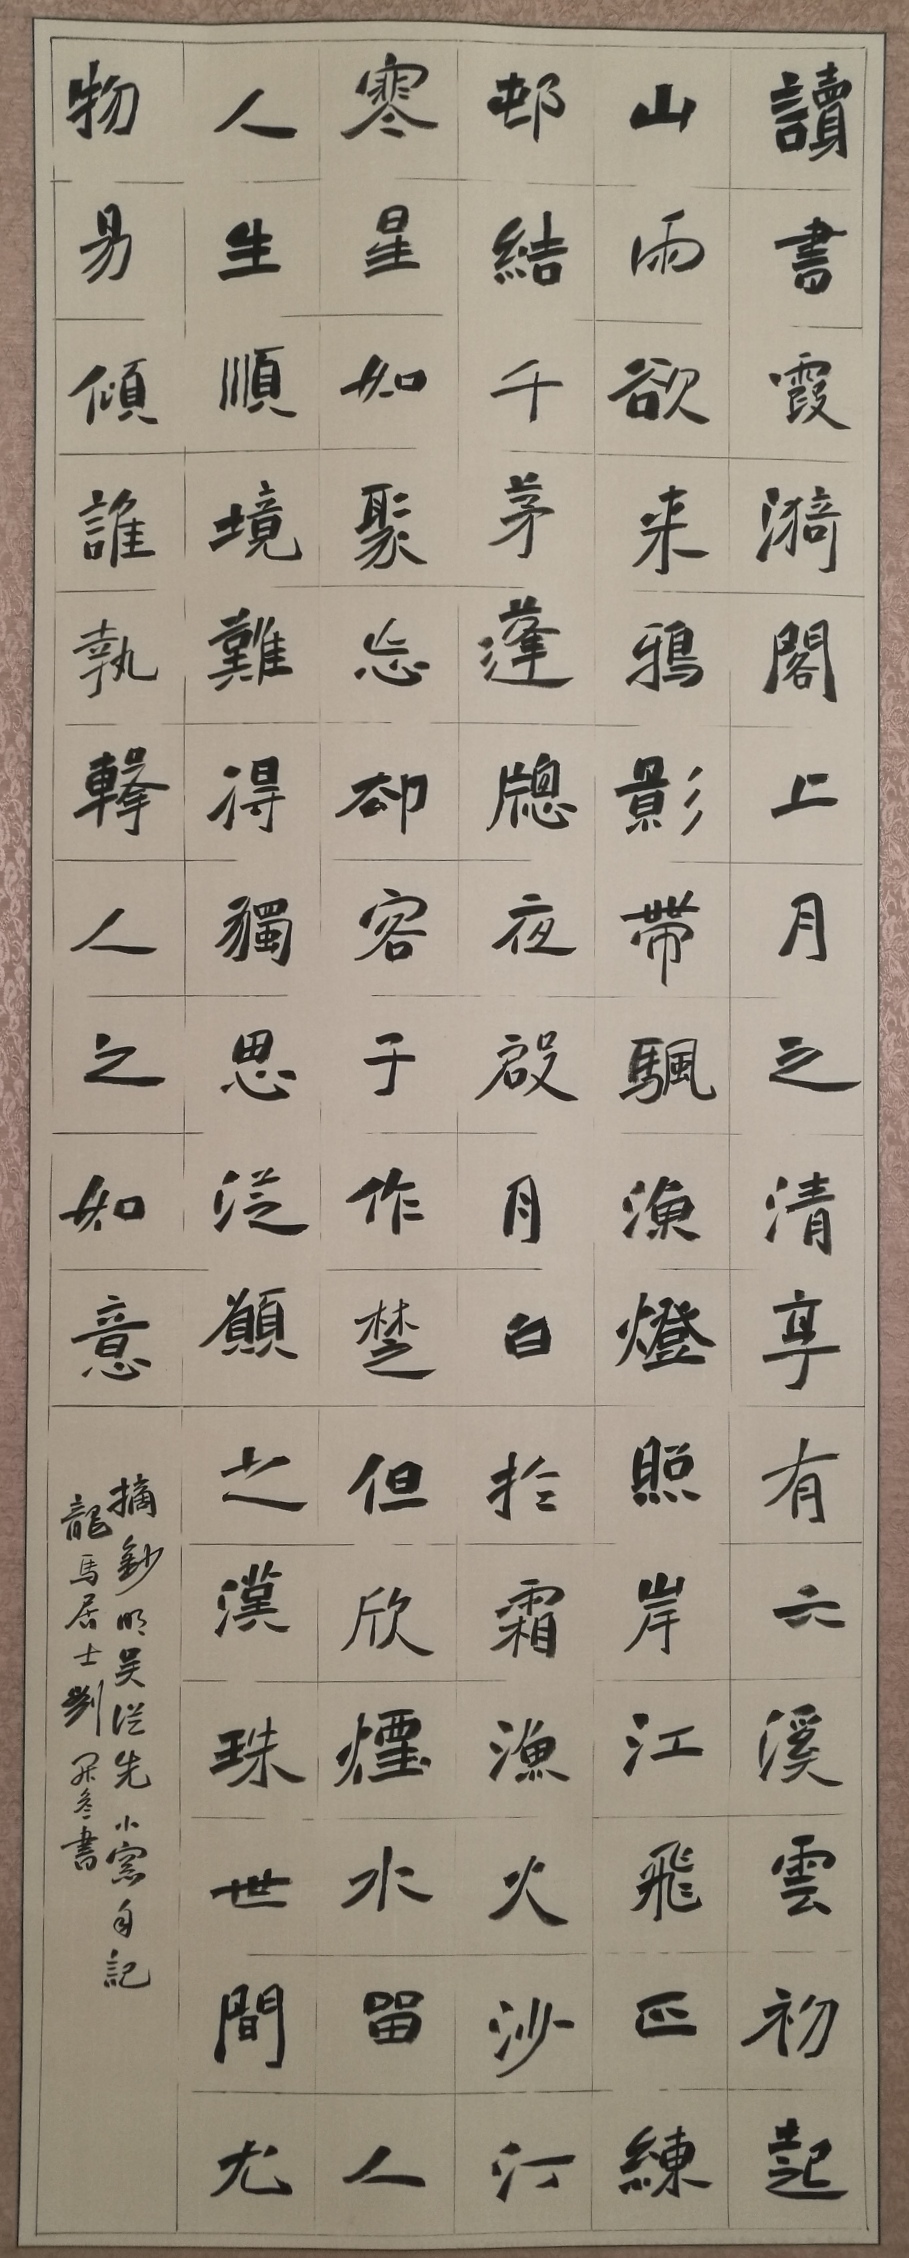 讀書霞漪閣上月之清享有六溪雲初起
山雨欲来鴉影帶颿漁燈照岸江飛匹練
邨結千茅蓬牎夜啟月白於霜漁火沙汀
寒星如聚忘卻客于作楚但欣煙水留人
人生順境難得獨思從願之漢珠世間尤
物易傾誰執擊人之如意
摘鈔明吴從先小窗自記
龍馬居士劉書